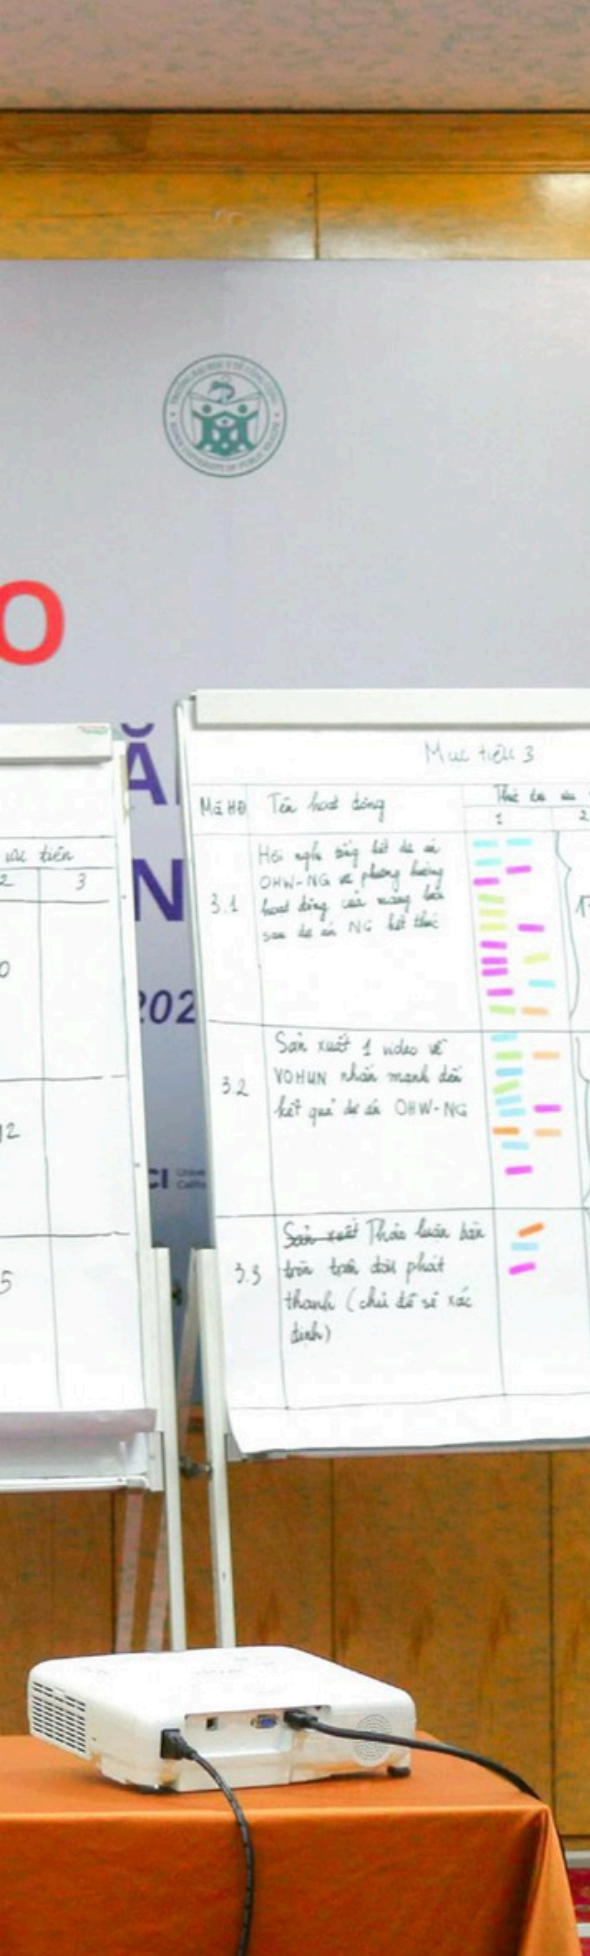 TRƯỜNG ĐẠI HỌC Y TẾ CÔNG CỘNG
HANOI UNIVERSITY OF PUBLIC HEALTH
O
Ă
N
202
CI
ưu tiên
2 3
0
12
5
Mục tiêu 3
Mã HĐ Tên hoạt động Thứ tự ưu
1 2
3.1
Hội nghị tổng kết dự án
OHW-NG và phương hướng
hoạt động của mạng lưới
sau dự án NG kết thúc
3.2
Sản xuất 1 video về
VOHUN nhấn mạnh đến
kết quả dự án OHW-NG
3.3
Sản xuất Thảo luận bàn
tròn trên đài phát
thanh (chủ đề sẽ xác
định)